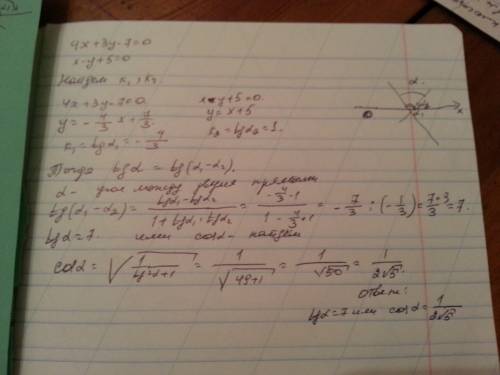 4x+3y-7=0
x-y+5=0
Найдем k₁, k₂.
4x+3y-7=0. x-y+5=0.
y=-4/3 x+7/3. y=x+5
k₁=tgα₁=-4/3 k₂=tgα₂=1.
Тогда tgα=tg(α₁-α₂).
α- угол между двумя прямыми
tg(α₁-α₂)=(tgα₁-tgα₂)/(1+tgα₁·tgα₂)=(-4/3-1)/(1-4/3·1)=-7/3:(-1/3)=7·3/3=7.
tgα=7. или cosα- найдем
cosα=√(1/(tg²α+1))=1/√(49+1)=1/√50=1/2√5.
ответ:
tgα=7 или cosα=1/2√5
α
α₂
α₁
x
0